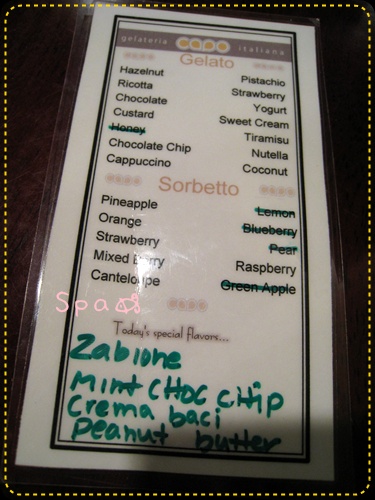 gelateria capo italiana
Gelato
Hazelnut
Ricotta
Chocolate
Custard
Honey
Chocolate Chip
Cappuccino
Pistachio
Strawberry
Yogurt
Sweet Cream
Tiramisu
Nutella
Coconut
Sorbetto
Pineapple
Orange
Strawberry
Mixed Berry
Canteloupe
Lemon
Blueberry
Pear
Raspberry
Green Apple
Today's special flavors...
Zabione
Mint CHOC CHip
Crema baci
Peanut butter